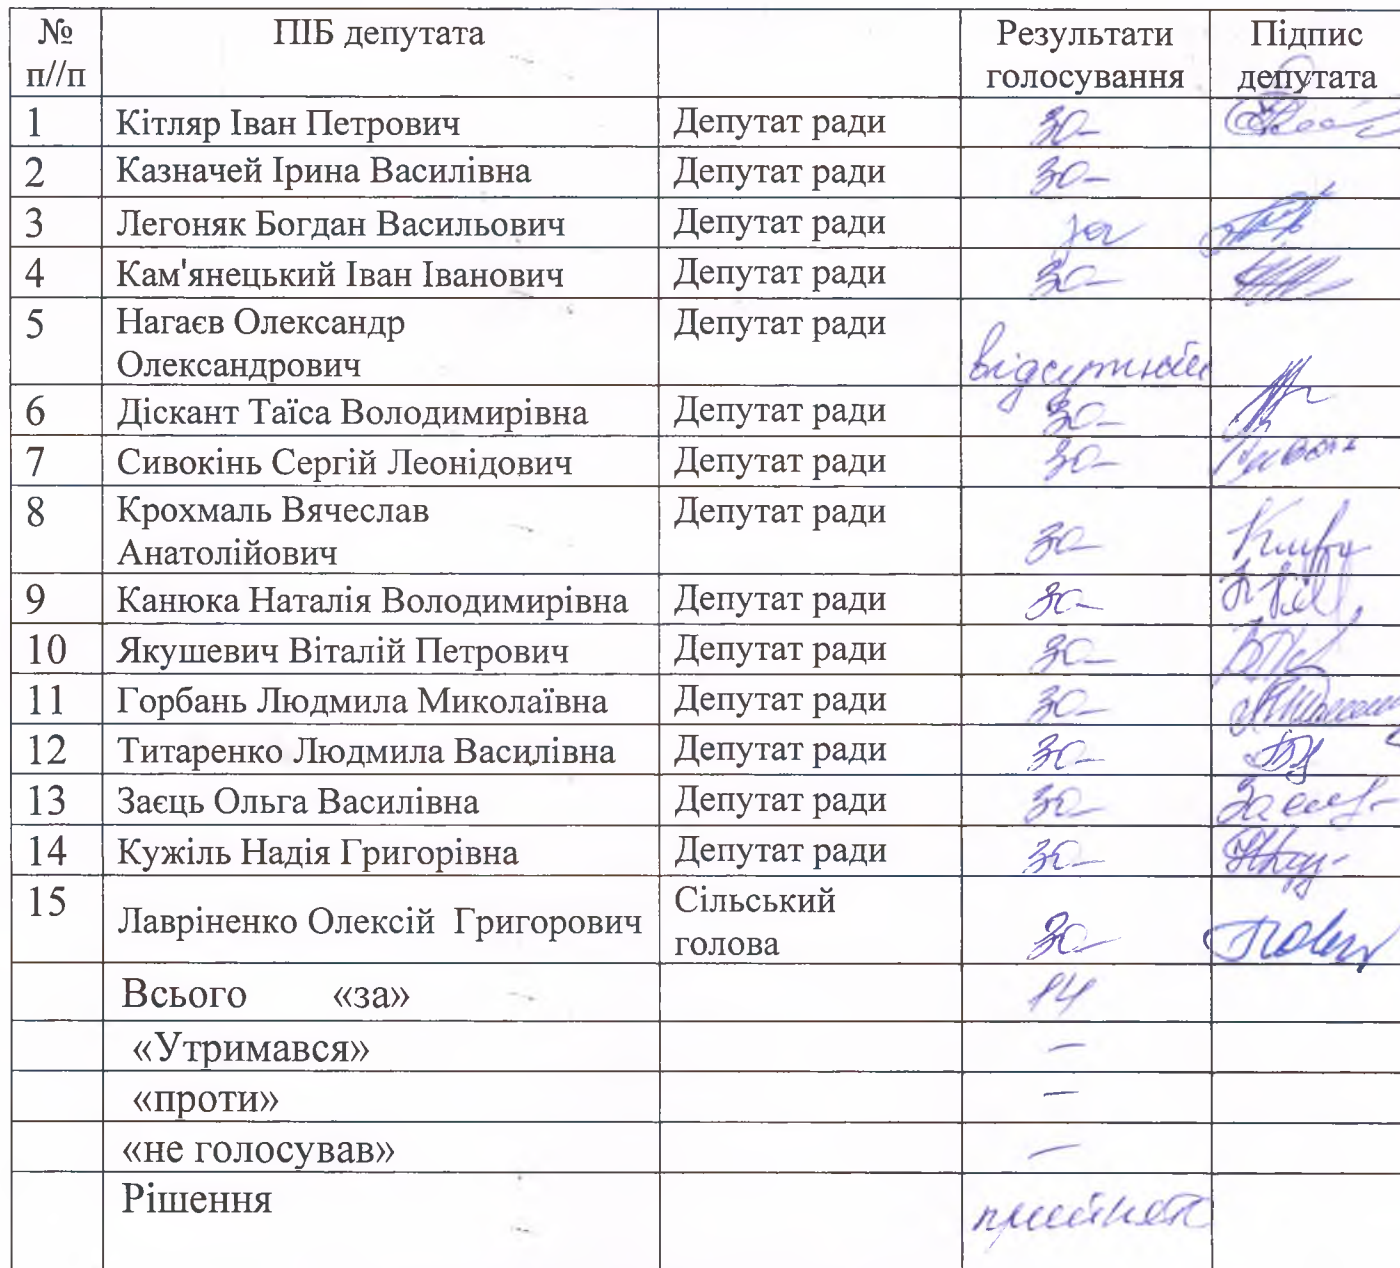 № п//п ПІБ депутата Результати голосування Підпис депутата
1 Кітляр Іван Петрович Депутат ради за
2 Казначей Ірина Василівна Депутат ради за
3 Легоняк Богдан Васильович Депутат ради за
4 Кам'янецький Іван Іванович Депутат ради за
5 Нагаєв Олександр Олександрович Депутат ради відсутній
6 Діскант Таїса Володимирівна Депутат ради за
7 Сивокінь Сергій Леонідович Депутат ради за
8 Крохмаль Вячеслав Анатолійович Депутат ради за
9 Канюка Наталія Володимирівна Депутат ради за
10 Якушевич Віталій Петрович Депутат ради за
11 Горбань Людмила Миколаївна Депутат ради за
12 Титаренко Людмила Василівна Депутат ради за
13 Заєць Ольга Василівна Депутат ради за
14 Кужіль Надія Григорівна Депутат ради за
15 Лавріненко Олексій Григорович Сільський голова за
Всього «за» 14
«Утримався» –
«проти» –
«не голосував» –
Рішення прийнято